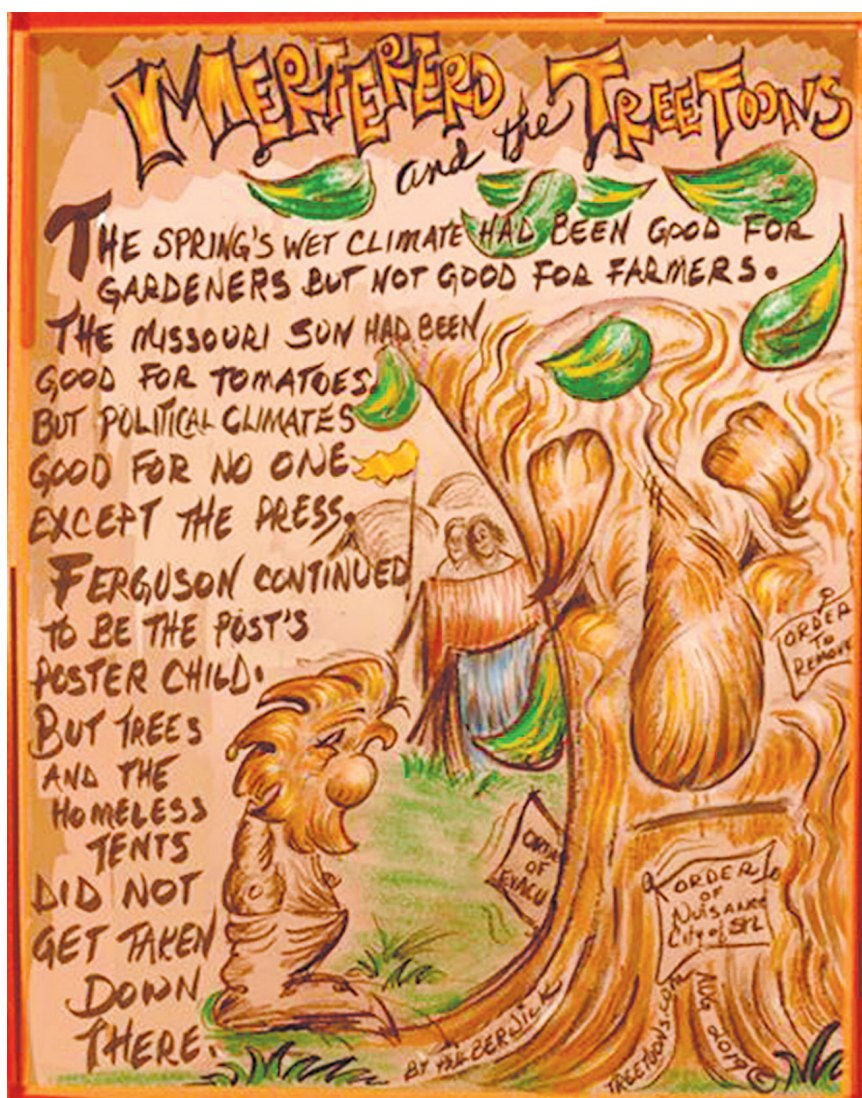 MERFERERD
and the TREETOONS
THE SPRING'S WET CLIMATE HAD BEEN GOOD FOR
GARDENERS BUT NOT GOOD FOR FARMERS.
THE MISSOURI SUN HAD BEEN
GOOD FOR TOMATOES.
BUT POLITICAL CLIMATES
GOOD FOR NO ONE
EXCEPT THE PRESS.
FERGUSON CONTINUED
TO BE THE POST'S
POSTER CHILD.
BUT TREES
AND THE
HOMELESS
TENTS
DID NOT
GET TAKEN
DOWN
THERE.
ORDER
TO
REMOVE
OF
EVACU
ORDER
OF
NUISANCE
City of STL
BY
TREETOONS.COM
AUG 2019 ©